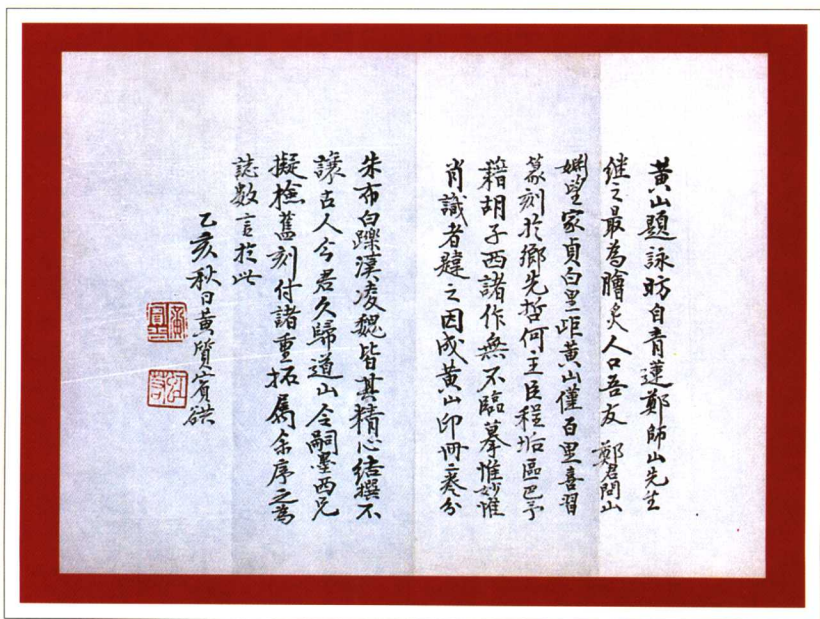 黄山題詠昉自青蓮鄭師山先生
继之最為膾炙人口吾友鄭君問山
望家貞白里距黄山僅百里喜習
篆刻於鄉先哲何主臣程垢區巴予
籍胡子西諸作無不臨摹惟妙惟
肖識者韙之因成黄山印冊叅分
朱布白躒漢凌魏皆其精心结撰不
讓古人今君久歸道山令嗣墨西兄
擬檢舊刻付諸重拓属余序之為
誌數言於此
乙亥秋日黄質賓谼